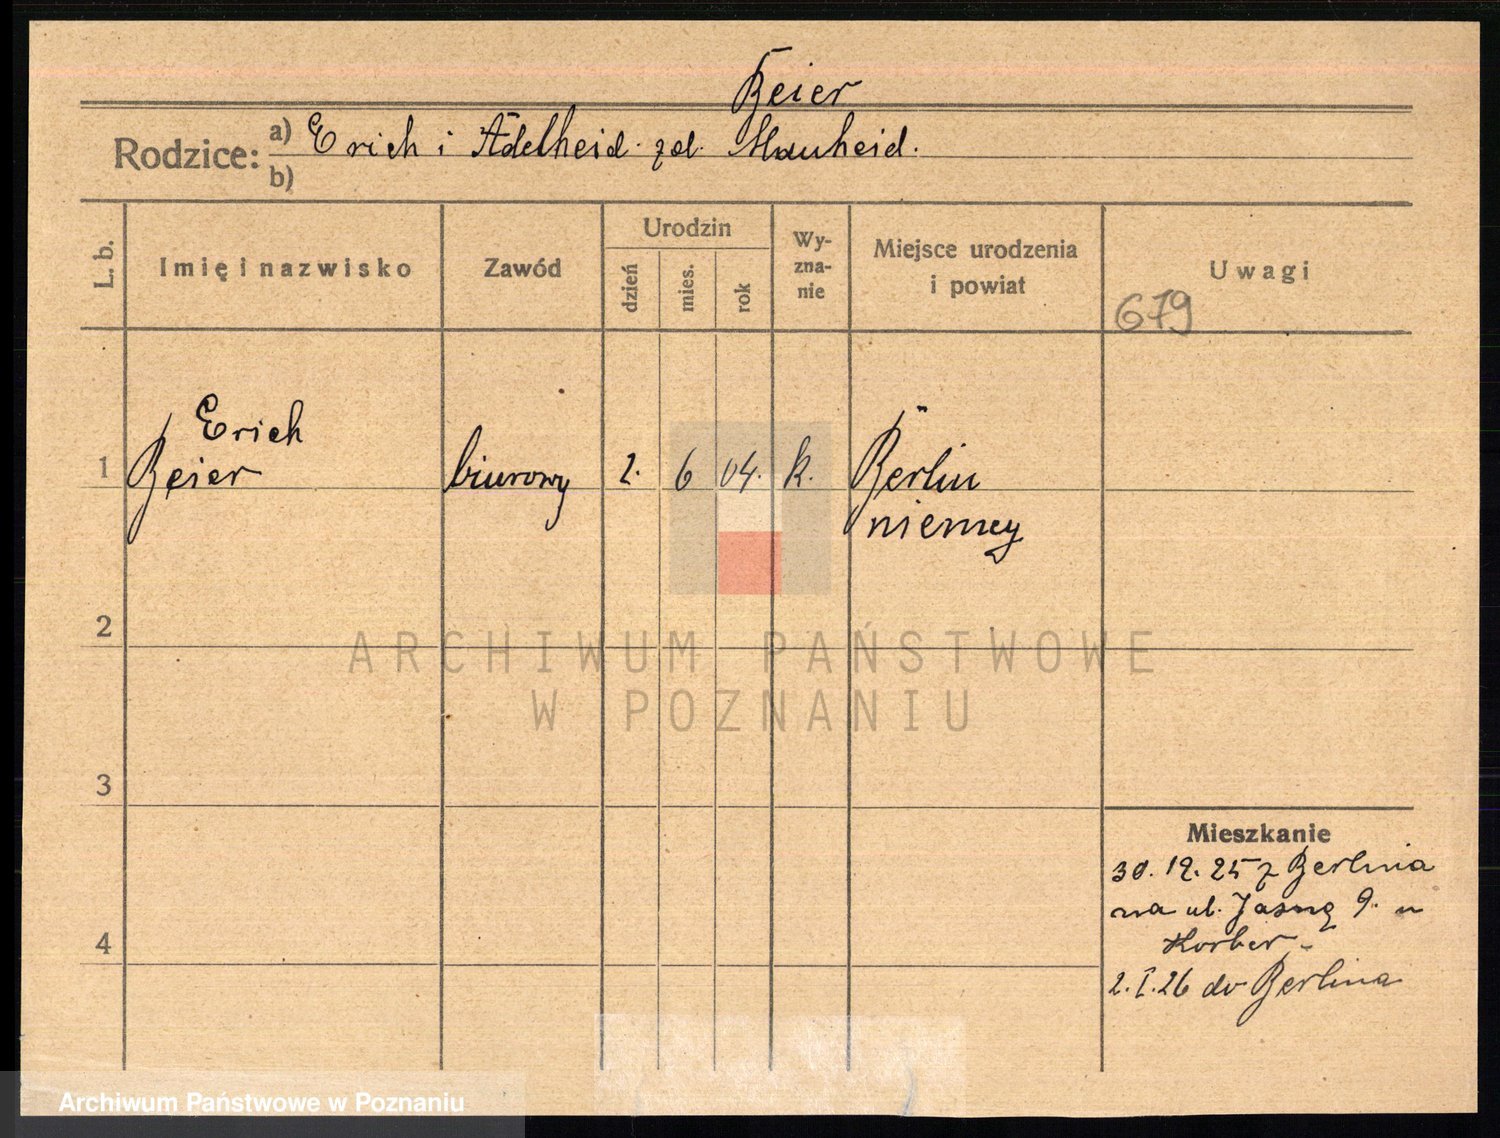 Beier
Rodzice: a) Erich i Adelheid zd. Mauheid.
b)
L. b.
Imię i nazwisko
Zawód
Urodzin
dzień
mies.
rok
Wy-
zna-
nie
Miejsce urodzenia
i powiat
Uwagi
679
Erich
1 Beier biurowy 2. 6 04. k. Berlin
niemcy
2
ARCHIWUM PAŃSTWOWE
W POZNANIU
3
Mieszkanie
30. 12. 25 z Berlina
na ul. Jasną 9. u
Korber
4
2. I. 26 do Berlina
Archiwum Państwowe w Poznaniu